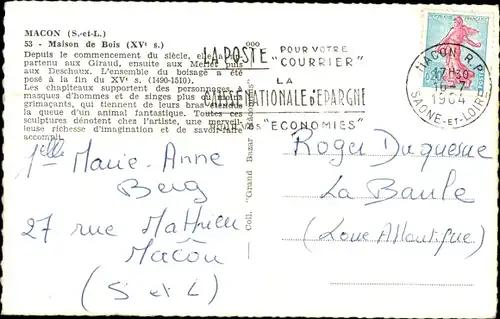 MACON (S.-et-L.)
53 - Maison de Bois (XVe s.)
Depuis le commencement du siècle, elle a ap-
partenu aux Giraud, ensuite aux Meflet puis
aux Deschaux. L'ensemble du boisage a été
posé à la fin du XVe s. (1490-1510).
Les chapiteaux supportent des personnages à
masques d'hommes et de singes plus ou moins
grimaçants, qui tiennent de leurs bras étendus
la queue d'un animal fantastique. Toutes ces
sculptures dénotent chez l'artiste, une merveil-
leuse richesse d'imagination et de savoir-faire
accompli.
Coll. "Grand Bazar Mâconnais"
LA POSTE POUR VOTRE
"COURRIER"
LA
CAISSE NATIONALE D'EPARGNE
POUR VOS "ECONOMIES"
MACON R.P.
17H30
16-7
1964
SAONE-ET-LOIRE
Melle Marie-Anne
Berg
27 rue Mathieu
Macôn
(S et L)
Roger Duquesne
La Baule
(Loire Atlantique)